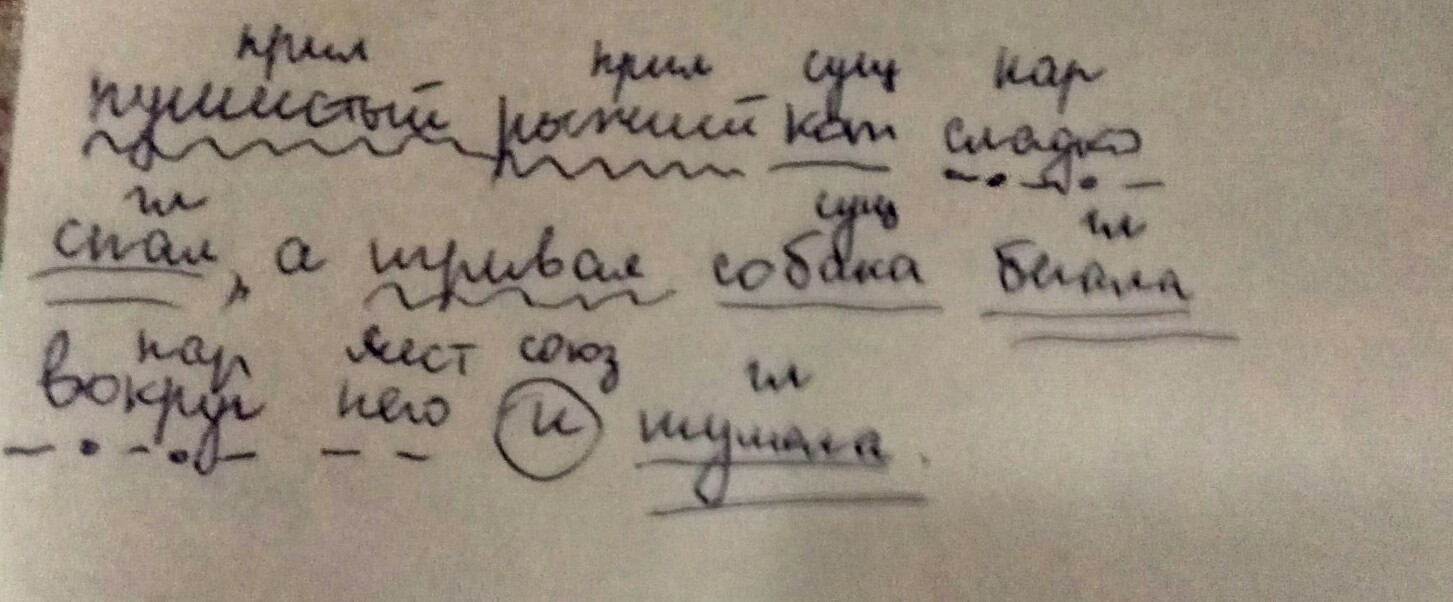 прил прил сущ нар
пушистый рыжий кот сладко
гл сущ гл
спал, а игривая собака бегала
нар мест союз гл
вокруг него и шумела.